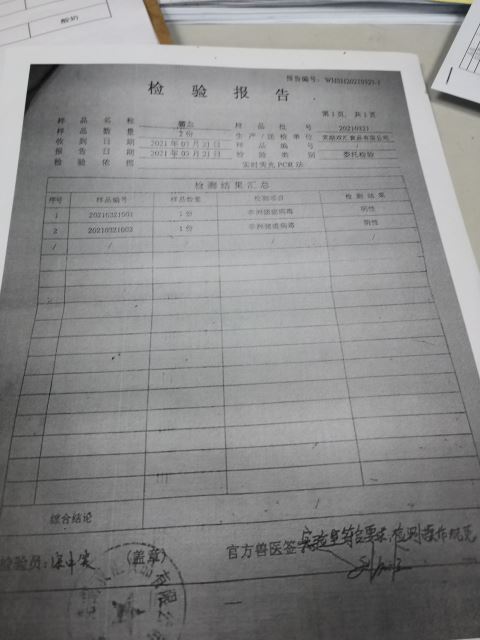 酸奶
报告编号:
检 验 报 告
第1页, 共1页
样 品 名 称 样 品 批 号 20210321
样 品 数 量 2份 生 产 / 送 检 单 位 芜湖双汇食品有限公司
收 到 日 期 2021年03月21日 样 品 编 号 /
报 告 日 期 2021年03月21日 检 验 类 别 委托检验
检 验 依 据 实时荧光PCR法
检测结果汇总
序号 样品编号 样品数量 检测项目 检测结果
1 20210321001 1份 非洲猪瘟病毒 阴性
2 20210321002 1份 非洲猪瘟病毒 阴性
/ / / / /
综合结论 /
检验员: (盖章) 官方兽医签 实验室符合要求,检测操作规范
有限公